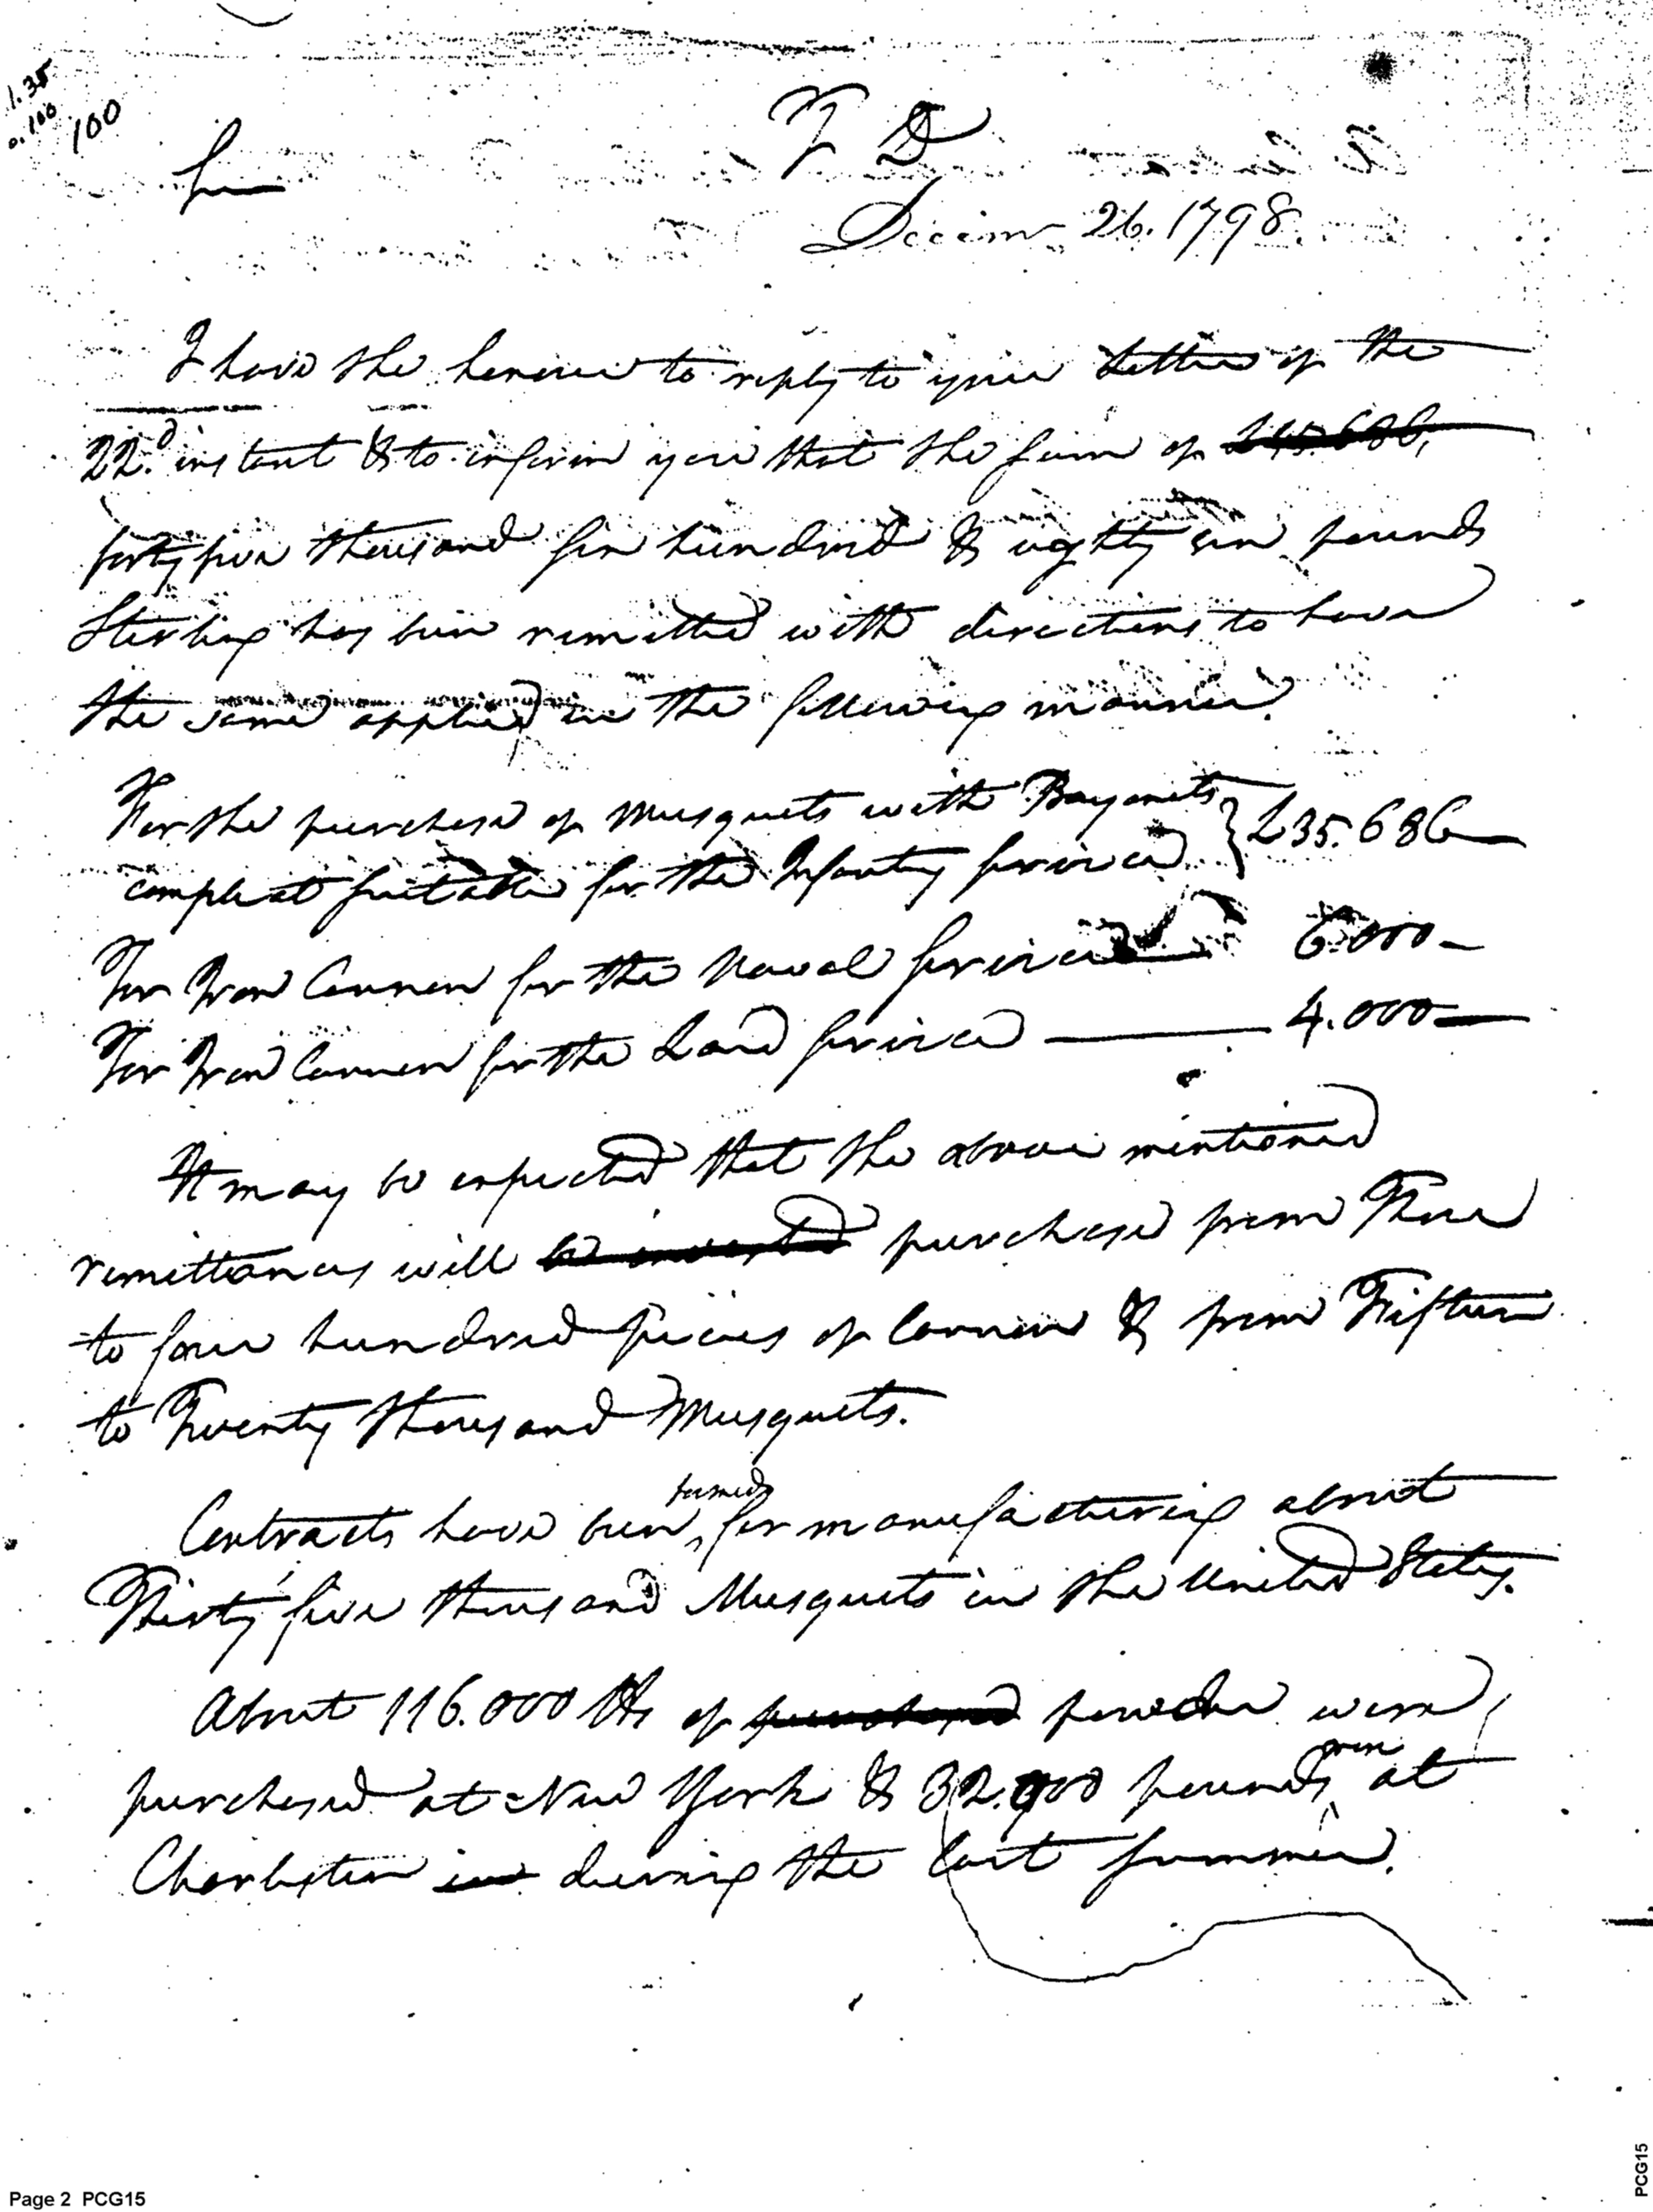 1.35
0.100
100
T D
Sir
Decem 26. 1798.
I have the honour to reply to your Letter of the
22.d instant & to inform you that the sum of £45.686,
forty five thousand six hundred & eighty six pounds
Sterling has been remitted with directions to have
the same applied in the following manner.
For the purchase of Musquets with Bayonets
compleat suitable for the Infantry service } £35.686
For Iron Cannon for the Naval service 6.000
For Iron Cannon for the Land service 4.000
It may be expected that the above mentioned
remittances will be invested purchase from Three
to four hundred pieces of Cannon & from Fifteen
to Twenty thousand Musquets.
Contracts have been formed for manufacturing about
Thirty five thousand Musquets in the United States.
About 116.000 lbs of purchased powder were
purchased at New York & 32.900 pounds at
Charleston in during the last summer.
Page 2 PCG15
PCG15